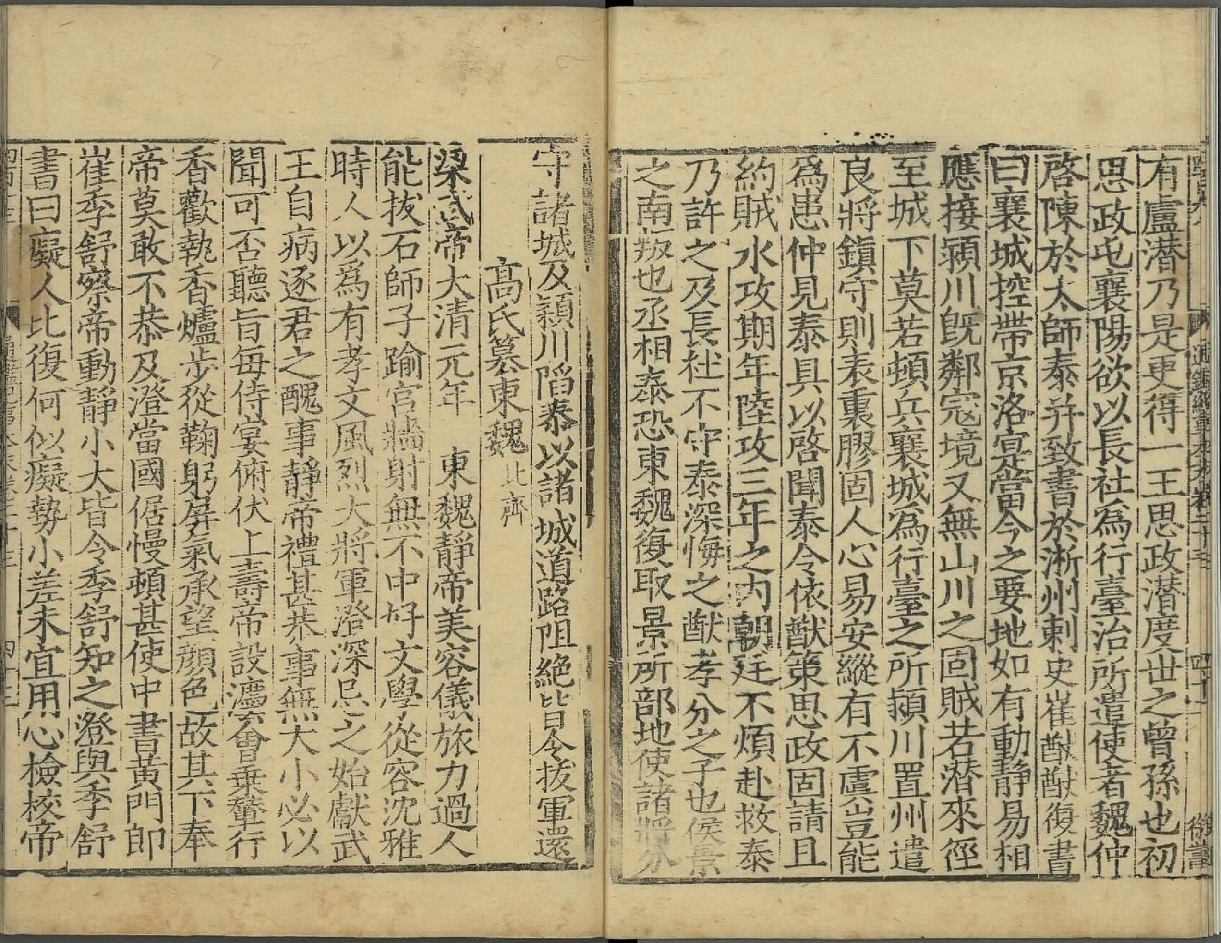 有盧潜乃是更得一王思政潜度世之曾孫也初
思政屯襄陽欲以長社為行臺治所遣使者魏仲
啓陳於太師泰并致書於淅州刺史崔猷猷復書
曰襄城控帶京洛寔當今之要地如有動靜易相
應接潁川既鄰寇境又無山川之固賊若潜來徑
至城下莫若頓兵襄城為行臺之所潁川置州遣
良將鎮守則表裏膠固人心易安縱有不虞豈能
為患仲見泰具以啓聞泰令依猷策思政固請且
約賊水攻期年陸攻三年之內朝廷不煩赴救泰
乃許之及長社不守泰深悔之猷孝分之子也侯景
之南叛也丞相泰恐東魏復取景所部地使諸將分
守諸城及潁川陷泰以諸城道路阻絕皆令拔軍還
高氏篡東魏 北齊
梁武帝大清元年 東魏靜帝美容儀旅力過人
能拔石師子踰宮牆射無不中好文學從容沈雅
時人以為有孝文風烈大將軍澄深忌之始獻武
王自病逐君之醜事靜帝禮甚恭事無大小必以
聞可否聽旨每侍宴俯伏上壽帝設灋會乗輦行
香歡執香爐步從鞠躬屏氣承望顏色故其下奉
帝莫敢不恭及澄當國倨慢頓甚使中書黃門郎
崔季舒察帝動靜小大皆令季舒知之澄與季舒
書曰癡人比復何似癡勢小差未宜用心檢校帝